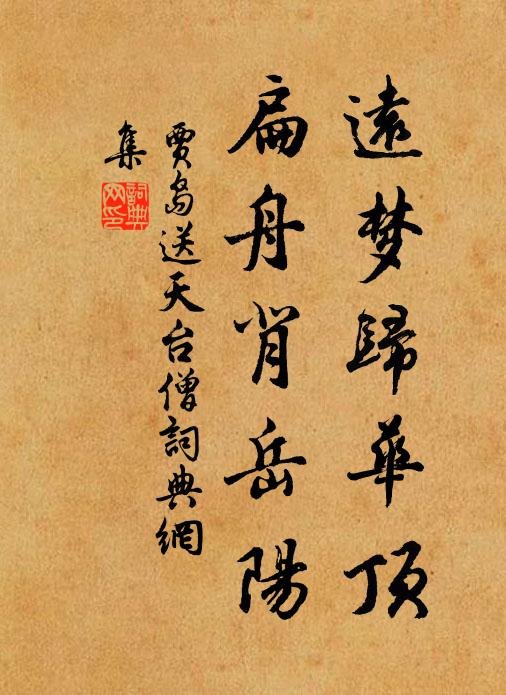 遠梦歸華顶
扁舟背岳陽
賈島送天台僧詞典網
集
詞典
网印